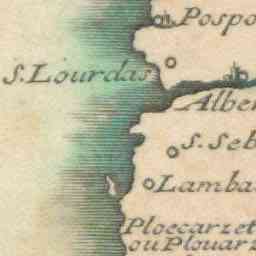 Pospo
S. Lourdas
Alber
S. Seb
Lamba
Ploecarzet
ou Plouarz